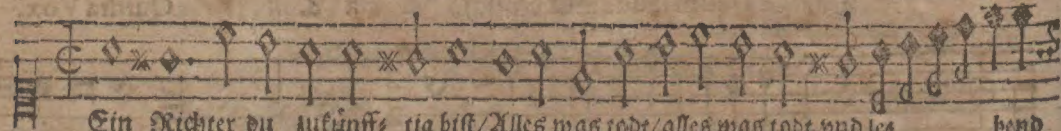 Ein Richter du zukünff⸗ tig bist/Alles was todt/alles was todt vnd le⸗ bend